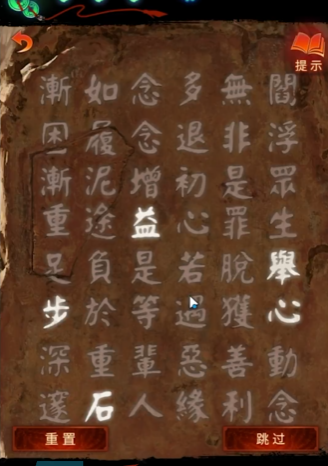 提示
閻浮眾生舉心動念
無非是罪脫獲善利
多退初心若遇惡緣
念念增益是等輩人
如履泥途負於重石
漸困漸重足步深邃
重置
跳过